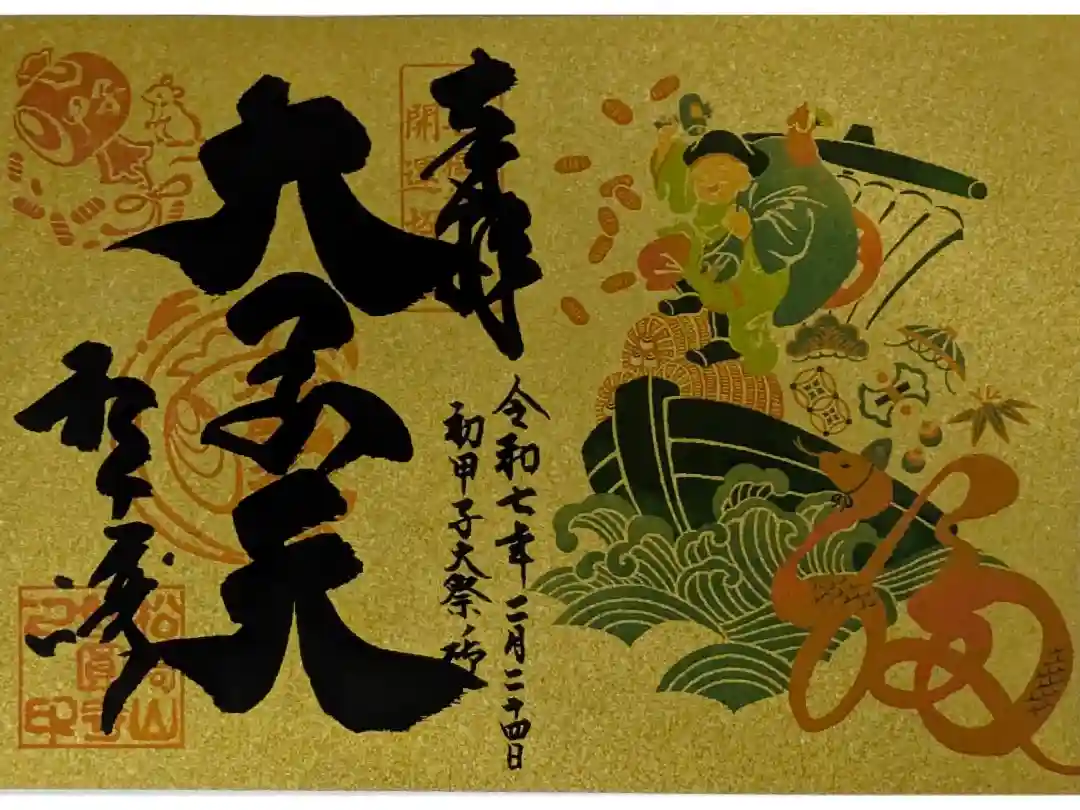 福
奉拝
開運招
令和七年二月二十四日
初甲子大祭ノ砌
大黒天
松崎山
妙圓寺
之印